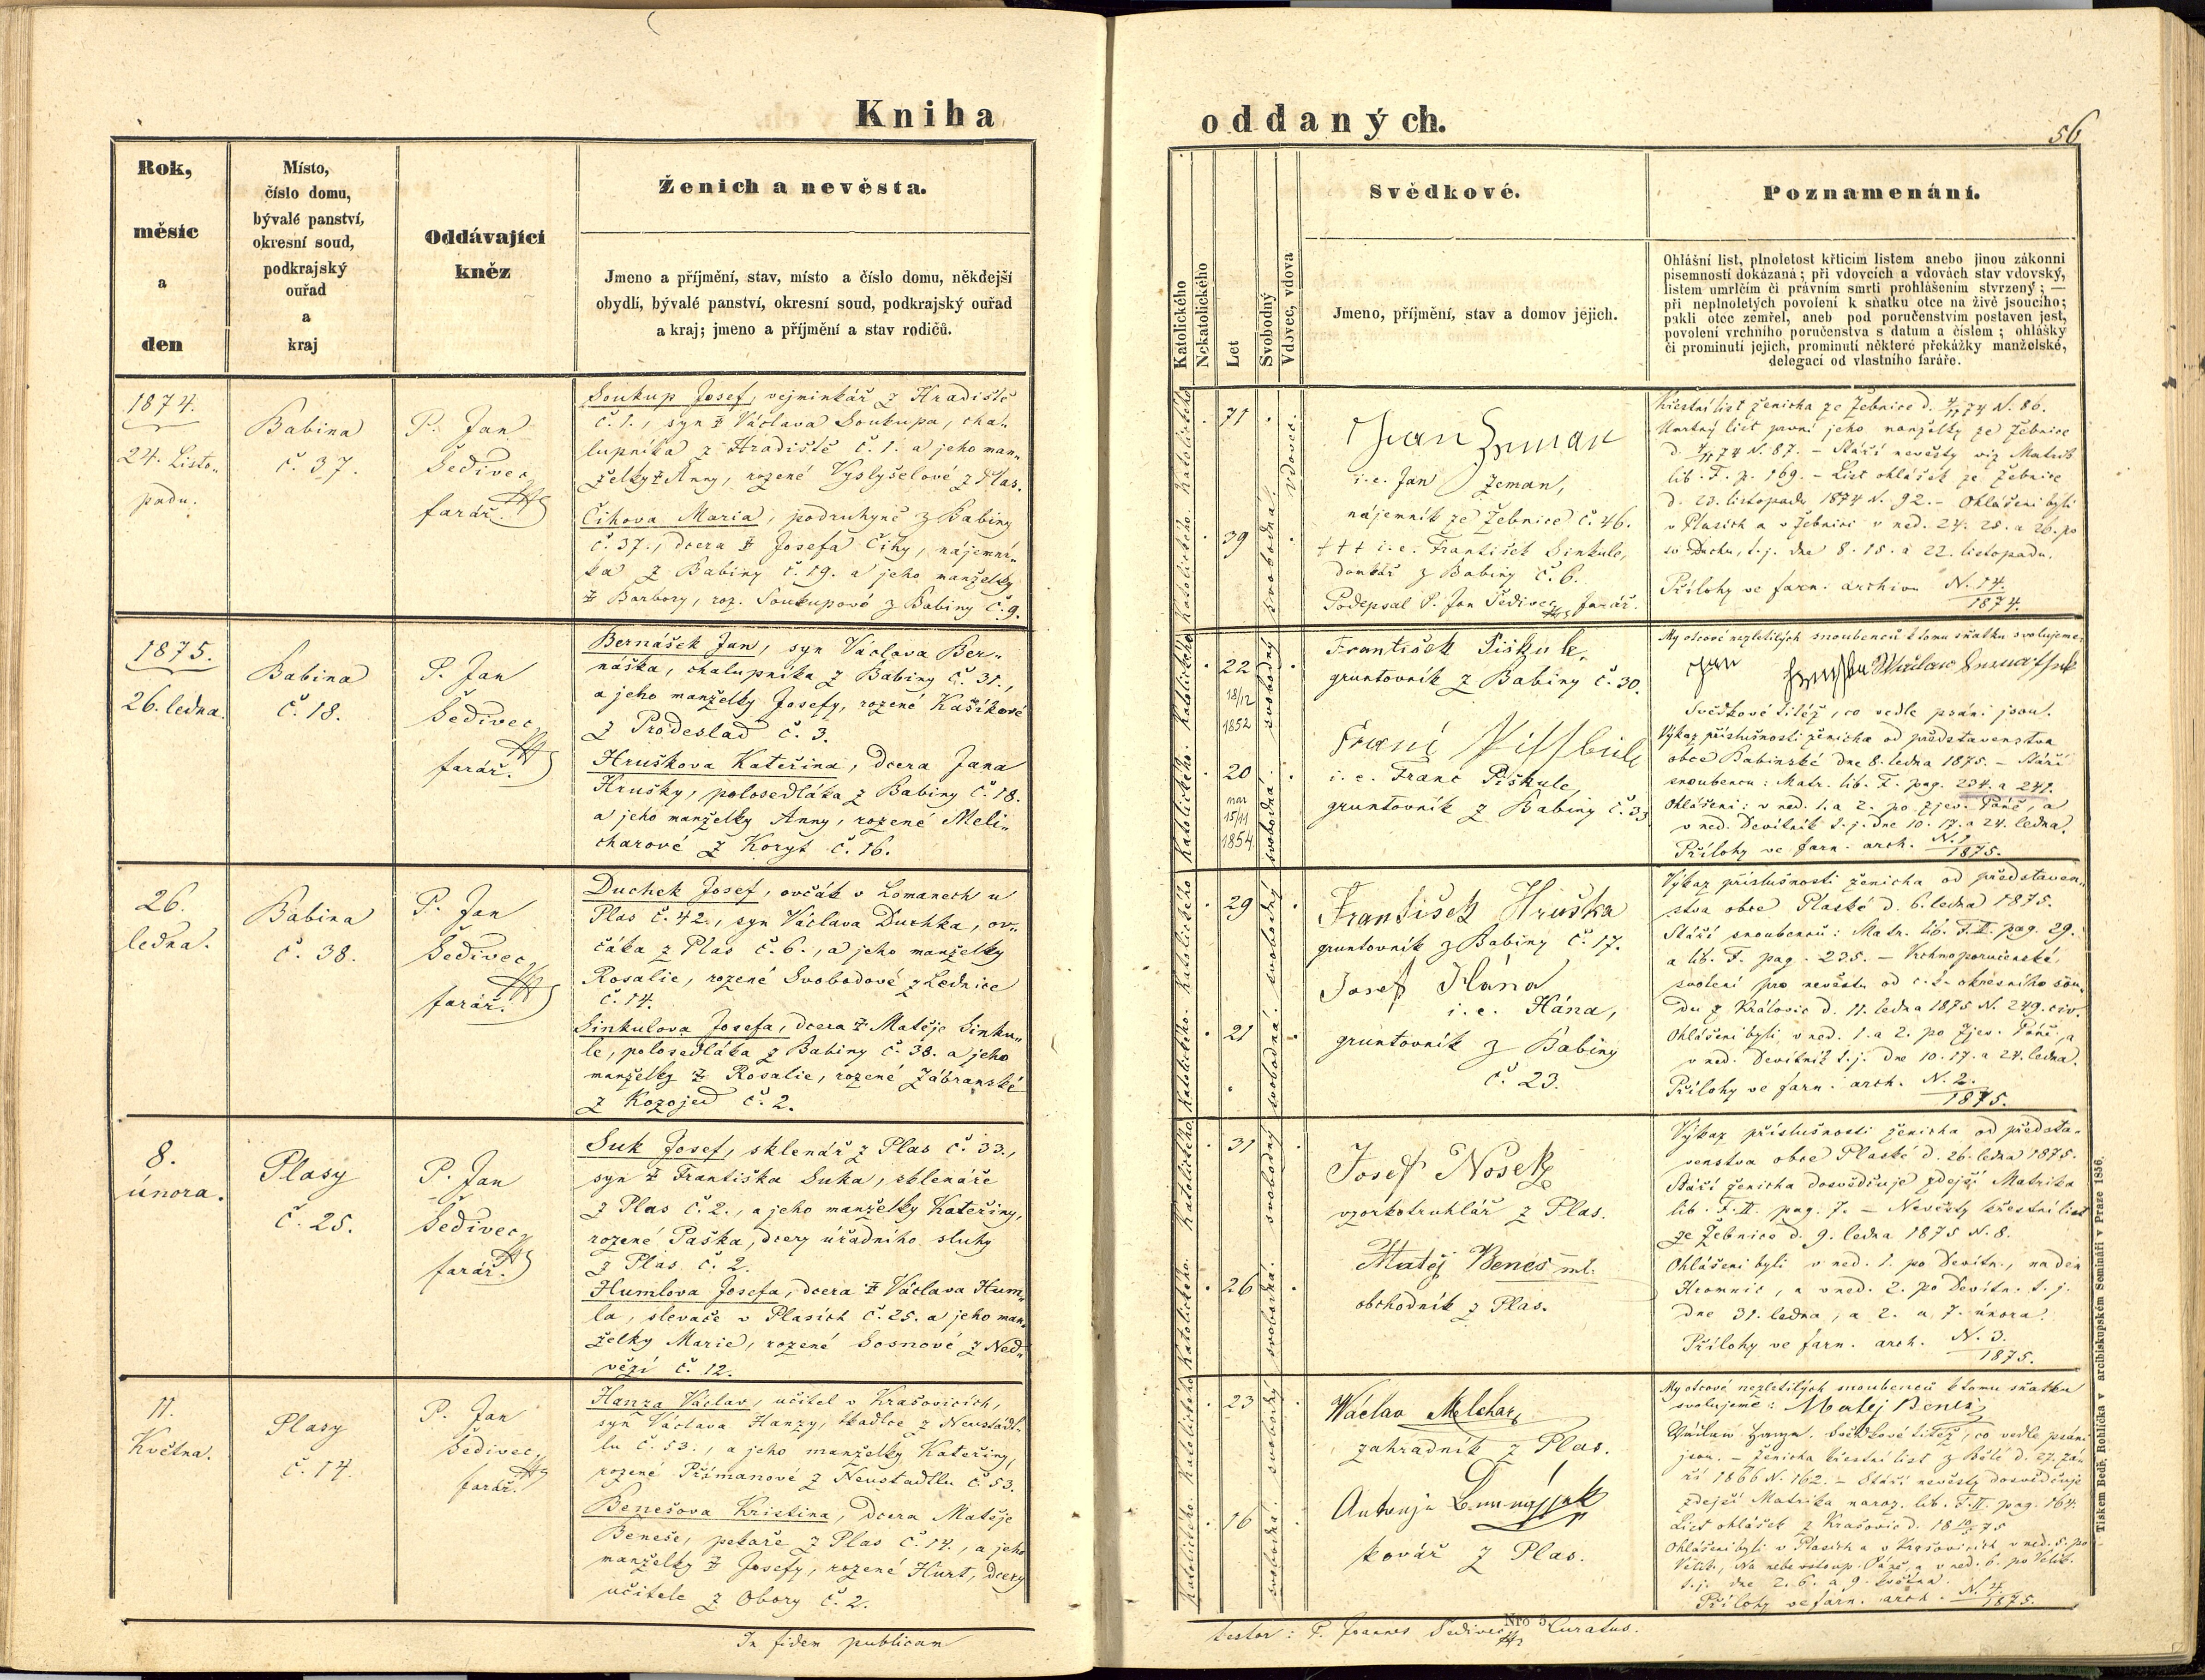 Kniha
Rok,
měsíc
a
den
Místo,
číslo domu,
bývalé panství,
okresní soud,
podkrajský
ouřad
a
kraj
Oddávající
kněz
Ženich a nevěsta.
Jmeno a příjmění, stav, místo a číslo domu, někdejší
obydlí, bývalé panství, okresní soud, podkrajský ouřad
a kraj; jmeno a příjmění a stav rodičů.
1874.
24. Listo-
padu.
Babina
č. 37.
P. Jan
Šedivec,
farář.
Soukup Josef, vejminkář z Hradiště
č. 1., syn † Václava Soukupa, cha-
lupníka z Hradiště č. 1. a jeho man-
želky † Anny, rozené Vyslyšelové z Plas.
Čihova Maria, podruhyně z Babiny
č. 37., dcera † Josefa Čihy, nájemní-
ka z Babiny č. 19. a jeho manželky
† Barbory, roz. Soukupové z Babiny č. 9.
1875.
26. ledna.
Babina
č. 18.
P. Jan
Šedivec,
farář.
Bernášek Jan, syn Václava Ber-
náška, chalupníka z Babiny č. 31.,
a jeho manželky Josefy, rozené Kašíkové
z Prodeslad č. 3.
Hruškova Kateřina, dcera Jana
Hrušky, polosedláka z Babiny č. 18.
a jeho manželky Anny, rozené Meli-
charové z Koryt č. 16.
26.
ledna.
Babina
č. 38.
P. Jan
Šedivec,
farář.
Duchek Josef, ovčák v Lomanech u
Plas č. 42., syn Václava Duchka, ov-
čáka z Plas č. 6., a jeho manželky
Rosalie, rozené Svobodové z Lednice
č. 14.
Sinkulova Josefa, dcera † Matěje Sinku-
le, polosedláka z Babiny č. 38. a jeho
manželky † Rosalie, rozené Zábranské
z Kozojed č. 2.
8.
února.
Plasy
č. 25.
P. Jan
Šedivec,
farář.
Suk Josef, sklenář z Plas č. 33.,
syn † Františka Suka, sklenáře
z Plas č. 2., a jeho manželky Kateřiny,
rozené Paška, dcery úřadního sluhy
z Plas č. 2.
Humlova Josefa, dcera † Václava Hum-
la, slevače v Plasích č. 25. a jeho man-
želky Marie, rozené Sosnové z Ned-
vězí č. 12.
11.
Května.
Plasy
č. 14.
P. Jan
Šedivec,
farář.
Hanza Václav, učitel v Krašovicích,
syn Václava Hanzy, tkadlce z Neustadt-
lu č. 53., a jeho manželky Kateřiny,
rozené Přímanové z Neustadtlu č. 53.
Benešova Kristina, dcera Matěje
Beneše, pekaře z Plas č. 14., a jeho
manželky † Josefy, rozené Hurt, dcery
učitele z Obory č. 2.
In fidem publicam
oddaných.
56
Katolického
Nekatolického
Let
Svobodný
Vdovec, vdova
Svědkové.
Jmeno, příjmění, stav a domov jejich.
Poznamenání.
Ohlášní list, plnoletost křticím listem anebo jinou zákonní
písemností dokázaná; při vdovcích a vdovách stav vdovský,
listem umrlčím či právním smrti prohlášením stvrzený; —
při neplnoletých povolení k sňatku otce na živě jsoucího;
pakli otec zemřel, aneb pod poručenstvím postaven jest,
povolení vrchního poručenstva s datum a číslem; ohlášky
či prominutí jejich, prominutí některé překážky manželské,
delegací od vlastního faráře.
Katolického. Katolického
71
39
vdovec.
svobodná.
Jan Zeman
i.e. Jan Zeman,
nájemník ze Žebnice č. 46.
††† i.e. František Sinkule,
domkář z Babiny č. 6.
Podepsal P. Jan Šedivec, farář.
Křestní list ženicha ze Žebnice d. 4/11 74 N. 86.
Umrtný list první jeho manželky ze Žebnice
d. 4/11 74 N. 87. – Stáří nevěsty viz Matrik
lib. F. p. 169. – List ohlášek ze Žebnice
d. 23. listopadu 1874 N. 92. – Ohlášeni byli
v Plasích a v Žebnici v ned. 24. 25. a 26. po
sv. Duchu, t. j. dne 8. 15. a 22. listopadu.
Přílohy ve farn. archivu N. 14.
1874.
Katolického. Katolického
22
18/12
1852
20
nar
15/11
1854
svobodná. svobodný
František Piškule,
gruntovník z Babiny č. 30.
i.e. Franc Piškule,
gruntovník z Babiny č. 33
My otcové nezletilých snoubenců k tomu sňatku svolujeme:
Svědkové titéž, co vedle psáni jsou.
Výkaz příslušnosti ženicha od představenstva
obce Babinské dne 8. ledna 1875. – Stáří
snoubenců: Matr. lib. F. pag. 234. a 241.
Ohlášeni: v ned. 1. a 2. po Zjev. Páně, a
v ned. Devítník t. j. dne 10. 17. a 24. ledna.
Přílohy ve farn. arch. N. 1.
1875.
Katolického. Katolického
29
21
svobodná. svobodný
František Hruška
gruntovník z Babiny č. 17.
Josef Hána
i.e. Hána,
gruntovník z Babiny
č. 23.
Výkaz příslušnosti ženicha od představen-
stva obce Plaské d. 6. ledna 1875.
Stáří snoubenců: Matr. lib. F. II. pag. 29.
a lib. F. pag. 235. – Vrchnoporučenské
svolení pro nevěstu od c. k. okresního sou-
du z Královic d. 11. ledna 1875 N. 249. civ.
Ohlášeni byli v ned. 1. a 2. po Zjev. Páně, a
v ned. Devítník t. j. dne 10. 17. a 24. ledna.
Přílohy ve farn. arch. N. 2.
1875.
Katolického. Katolického
31
26
svobodná. svobodný
Josef Nosek
vzorkotruhlář z Plas.
Matěj Beneš ml.
obchodník z Plas.
Výkaz příslušnosti ženicha od předsta-
venstva obce Plaské d. 26. ledna 1875.
Stáří ženicha dosvědčuje zdejší Matrika
lib. F. II. pag. 7. – Nevěsty křestní list
ze Žebnice d. 9. ledna 1875 N. 8.
Ohlášeni byli v ned. 1. po Devítn., na den
Hromnic, a v ned. 2. po Devítn. t. j.
dne 31. ledna, a 2. a 7. února.
Přílohy ve farn. arch. N. 3.
1875.
Katolického. Katolického
23
16
svobodná. svobodný
Wáclav Melchar,
zahradník z Plas.
kovář z Plas.
My otcové nezletilých snoubenců k tomu sňatku
svolujeme: Matěj Beneš
Svědkové titéž, co vedle psáni
jsou. – Ženicha křestní list z Bělé d. 27. zá-
ří 1866 N. 162. – Stáří nevěsty dosvědčuje
zdejší Matrika naroz. lib. F. II. pag. 164.
List ohlášek z Krašovic d. 18 10/5 75
Ohlášeni byli v Plasích a v Krašovicích v ned. 5. po
Velik., Na nebe vstoup. Páně, a v ned. 6. po Velik.
t. j. dne 2. 6. a 9. května.
Přílohy ve farn. arch. N. 4.
1875.
Nro 3.
testor: P. Joannes Šedivec, Curatus.
Tiskem Bedř. Rohlíčka v arcibiskupském Semináři v Praze 1856.